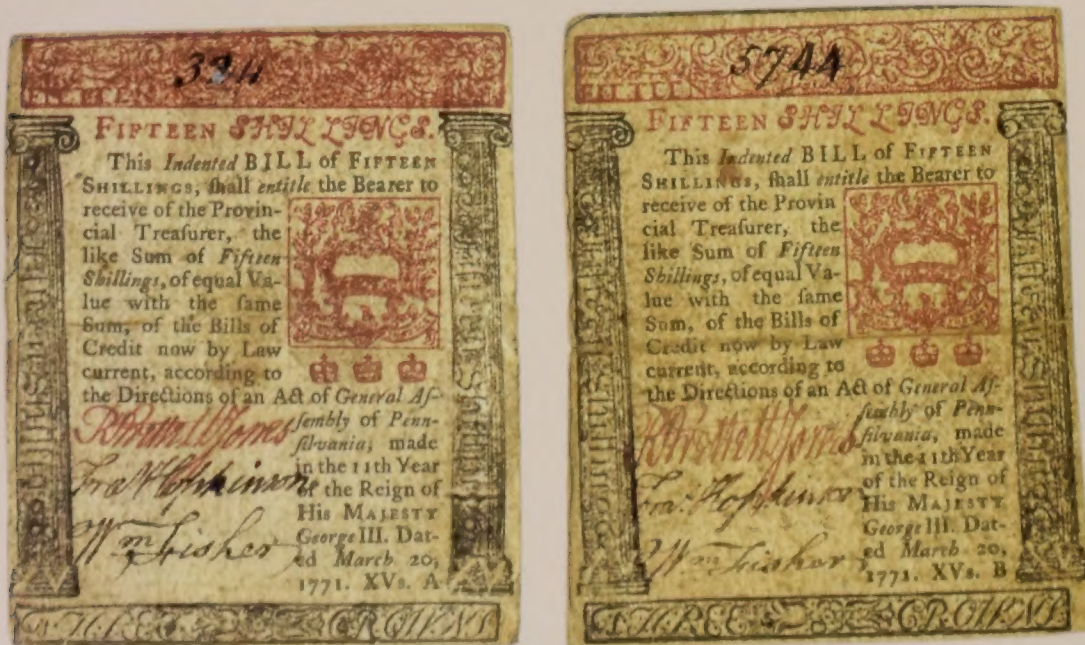 FIFTEEN
FIFTEEN SHILLINGS.
This Indented BILL of FIFTEEN
SHILLINGS, ſhall entitle the Bearer to
receive of the Provin-
cial Treaſurer, the
like Sum of Fifteen
Shillings, of equal Va-
lue with the ſame
Sum, of the Bills of
Credit now by Law
current, according to
the Directions of an Act of General Aſ-
ſembly of Penn-
ſilvania, made
in the 11th Year
of the Reign of
His MAJESTY
George III. Dat-
ed March 20,
1771. XVs. A
Fra Hopkinson
Wm Fisher
THREE CROWNS
5744
FIFTEEN
FIFTEEN SHILLINGS.
This Indented BILL of FIFTEEN
SHILLINGS, ſhall entitle the Bearer to
receive of the Provin
cial Treaſurer, the
like Sum of Fifteen
Shillings, of equal Va-
lue with the ſame
Sum, of the Bills of
Credit now by Law
current, according to
the Directions of an Act of General Aſ-
ſembly of Penn-
ſilvania, made
in the 11th Year
of the Reign of
His MAJESTY
George III. Dat-
ed March 20,
1771. XVs. B
Fra. Hopkinson
Wm Fisher
THREE CROWNS